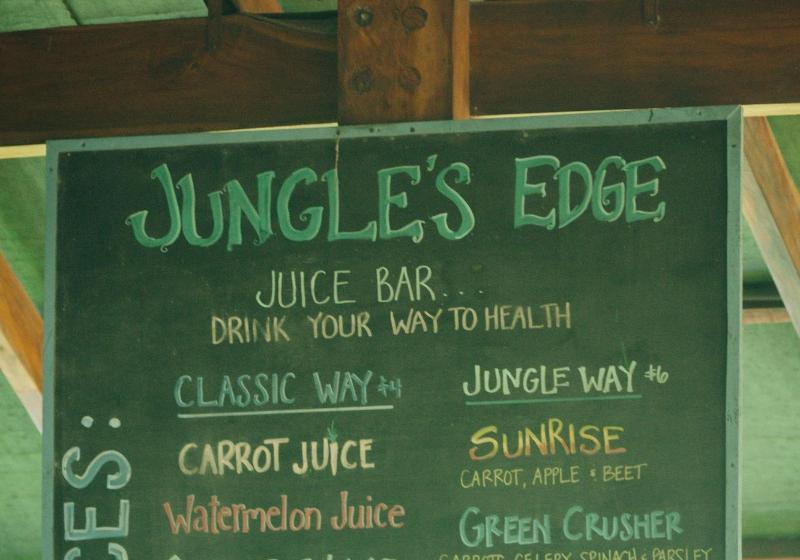 JUNGLE'S EDGE
JUICE BAR...
DRINK YOUR WAY TO HEALTH
CLASSIC WAY $4
CARROT JUICE
Watermelon Juice
JUNGLE WAY $6
SUNRISE
CARROT, APPLE & BEET
GREEN CRUSHER
CARROTS, CELERY, SPINACH & PARSLEY
CES: